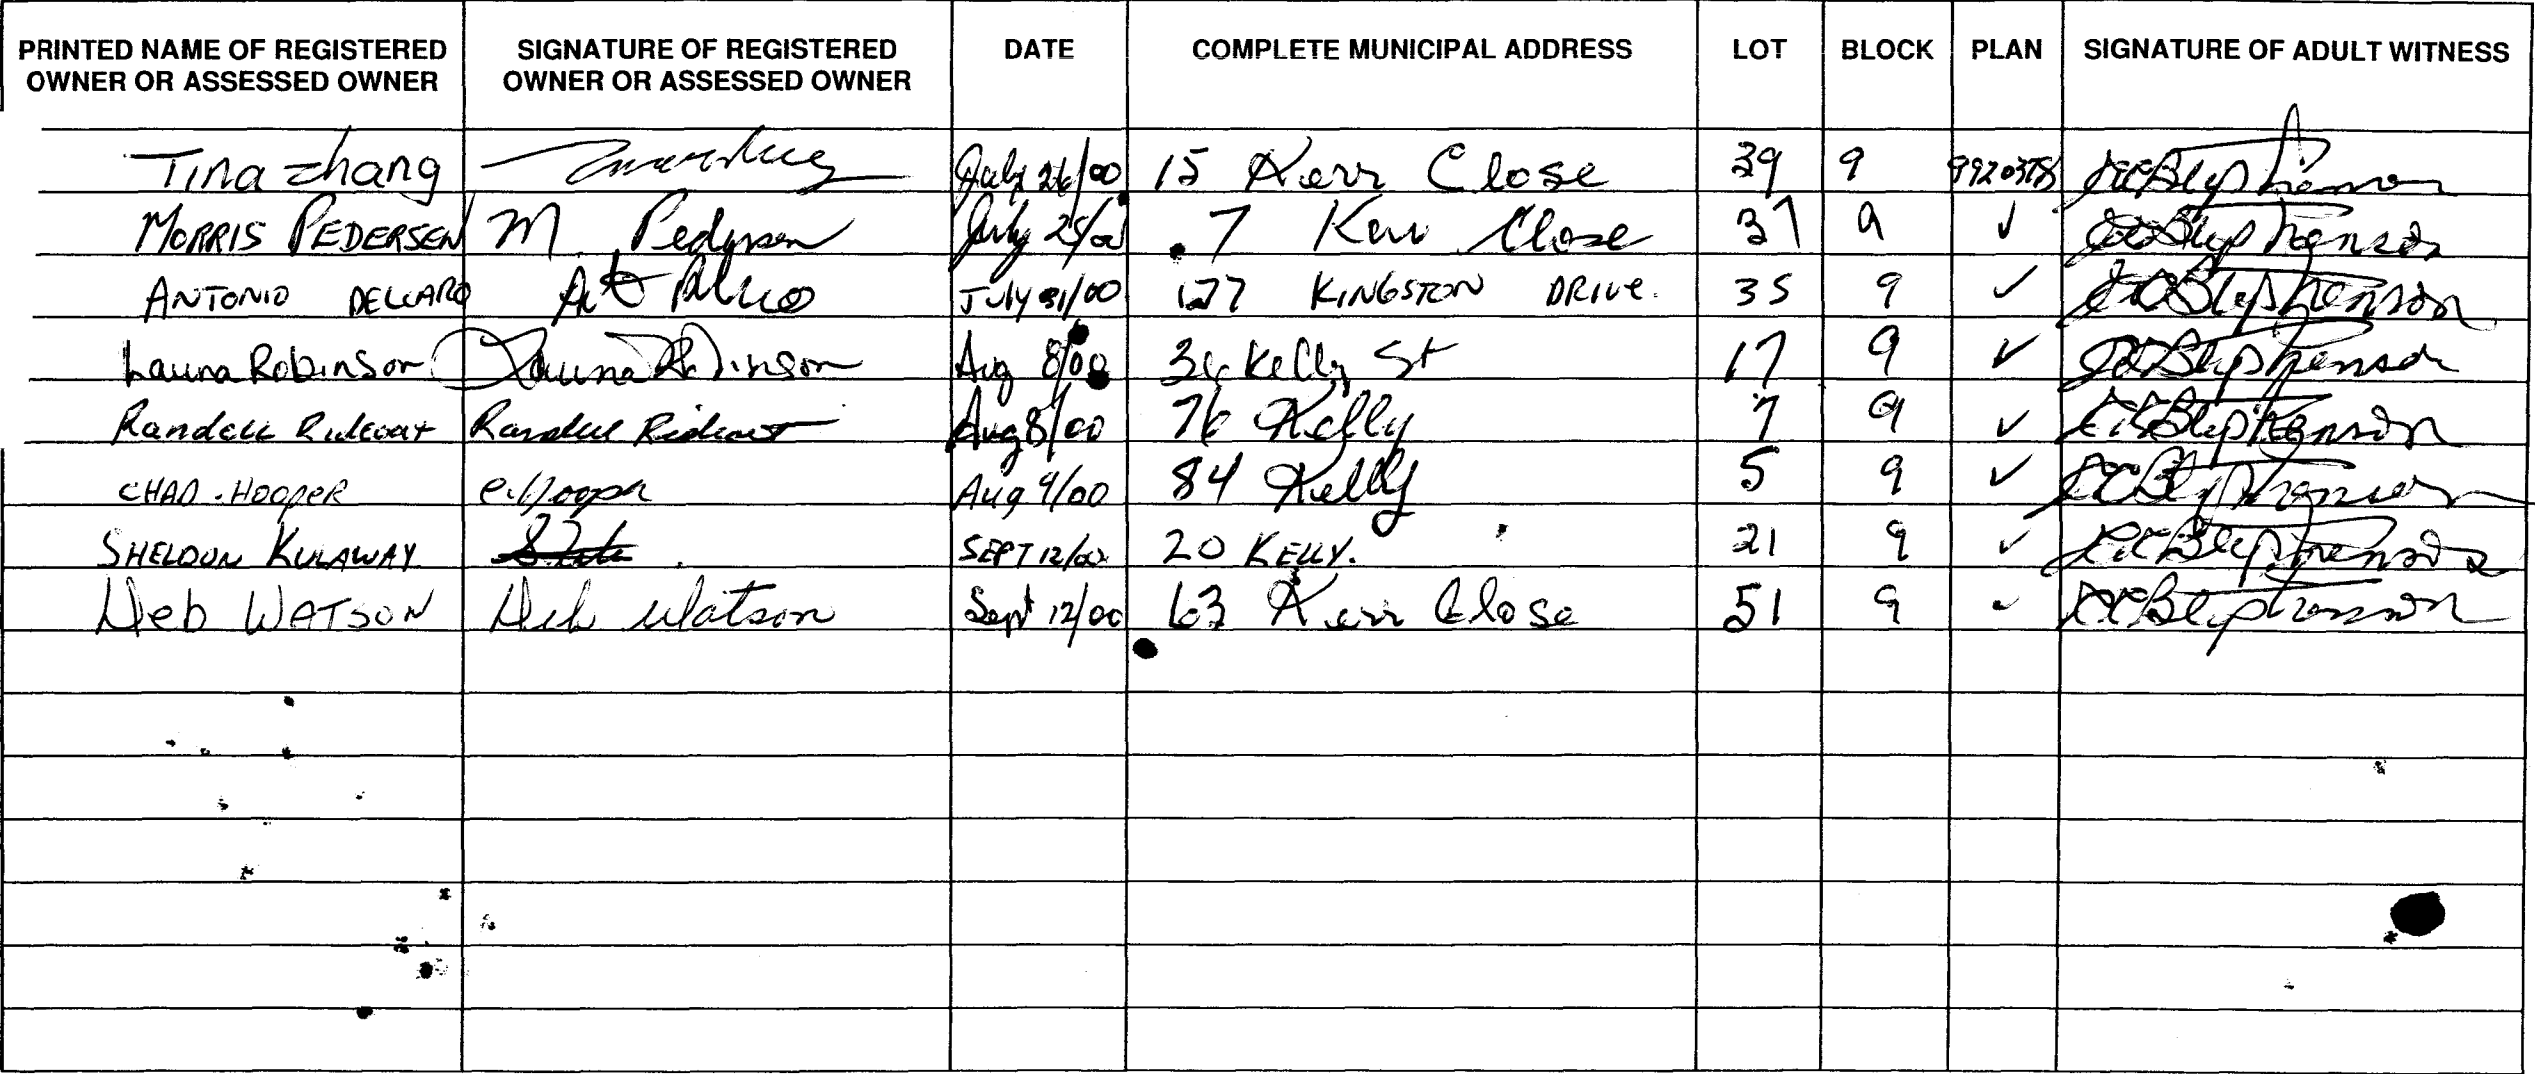 PRINTED NAME OF REGISTERED OWNER OR ASSESSED OWNER SIGNATURE OF REGISTERED OWNER OR ASSESSED OWNER DATE COMPLETE MUNICIPAL ADDRESS LOT BLOCK PLAN SIGNATURE OF ADULT WITNESS
Tina Zhang July 26/00 15 Kerr Close 39 9 Stephenson
MORRIS PEDERSEN M. Pedersen July 25/00 7 Kerr Close 37 9 ✓ Stephenson
ANTONIO July 31/00 177 KINGSTON DRIVE. 35 9 ✓ Stephenson
Launa Robinson Launa Robinson Aug 8/00 36 Kelly St 17 9 ✓ Stephenson
Randell Rideout Randell Rideout Aug 8/00 76 Kelly 7 9 ✓ Stephenson
CHAD. HOOPER C. Hooper Aug 9/00 84 Kelly 5 9 ✓ Stephenson
SHELDON KULAWAY SEPT 12/00 20 KELLY. 21 9 ✓ Stephenson
Deb WATSON Deb Watson Sept 12/00 63 Kerr Close 51 9 ✓ Stephenson